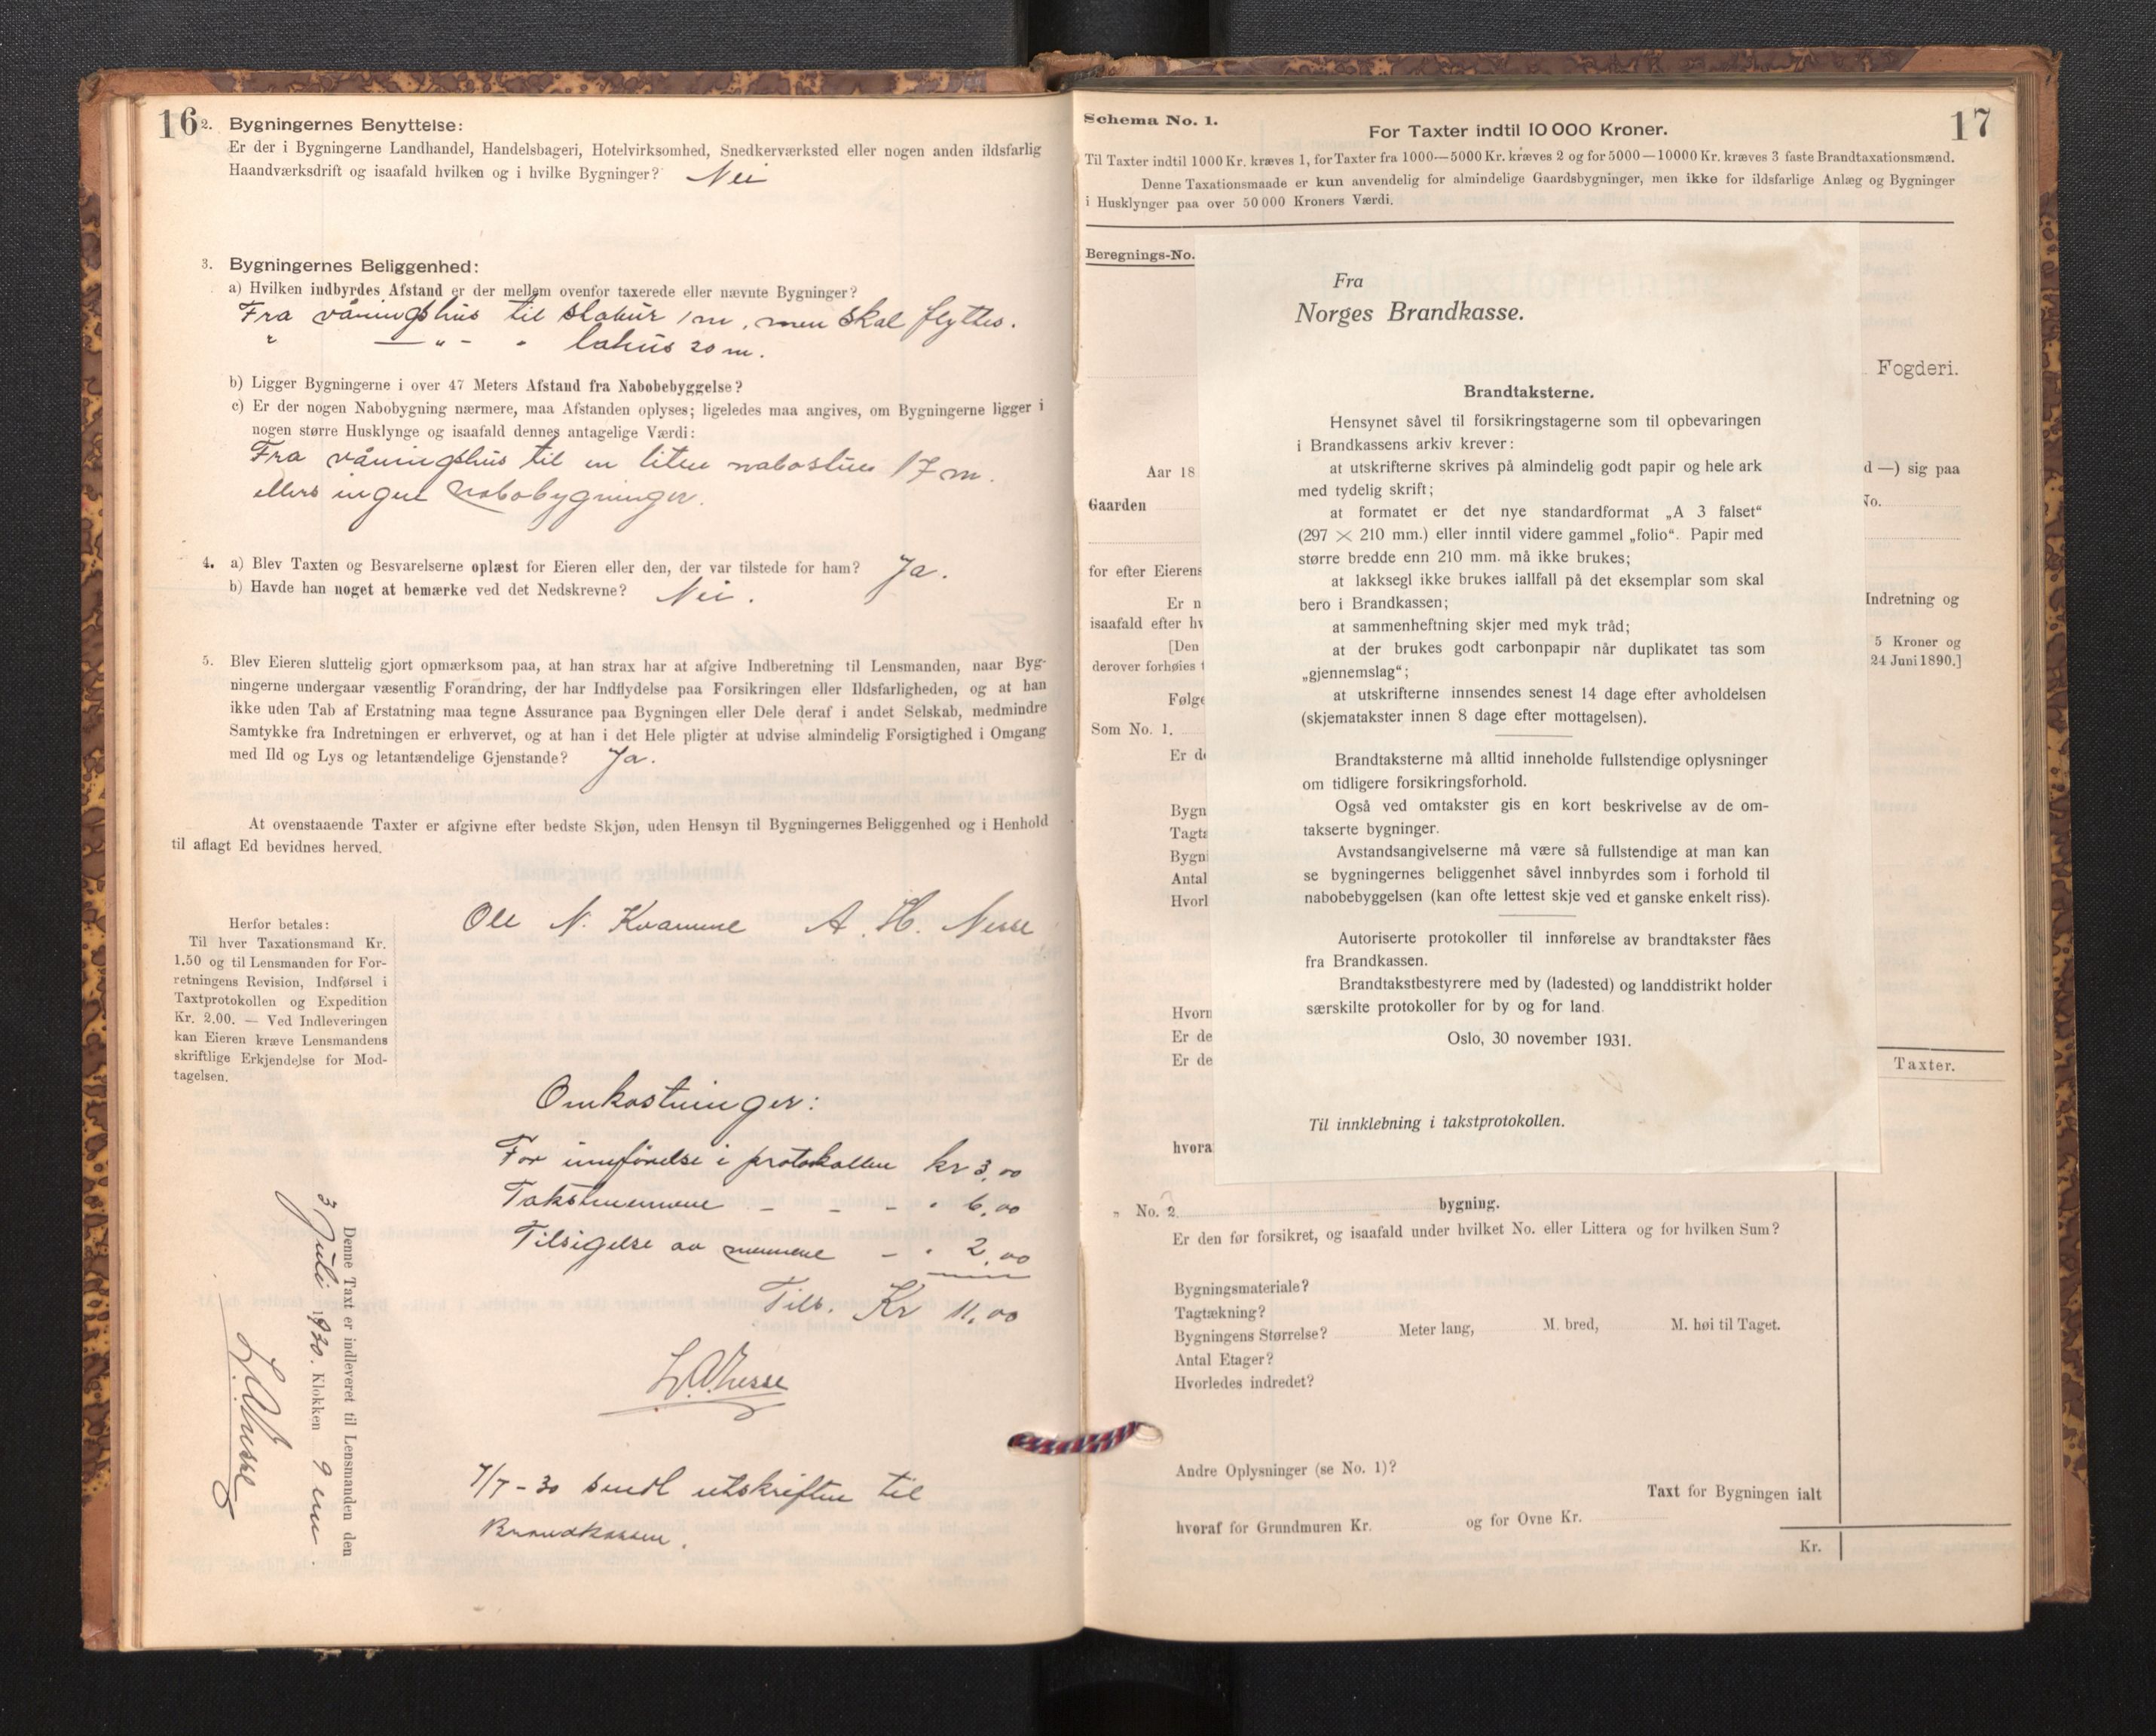 16
2. Bygningernes Benyttelse:
Er der i Bygningerne Landhandel, Handelsbageri, Hotelvirksomhed, Snedkerværksted eller nogen anden ildsfarlig
Haandværksdrift og isaafald hvilken og i hvilke Bygninger? Nei
3. Bygningernes Beliggenhed:
a) Hvilken indbyrdes Afstand er der mellem ovenfor taxerede eller nævnte Bygninger?
Fra våningshus til stabur 1 m, men skal flyttes.
" — " — " løhus 20 m.
b) Ligger Bygningerne i over 47 Meters Afstand fra Nabobebyggelse?
c) Er der nogen Nabobygning nærmere, maa Afstanden oplyses; ligeledes maa angives, om Bygningerne ligger i
nogen større Husklynge og isaafald dennes antagelige Værdi:
Fra våningshus til en liten nabostue 17 m.
ellers ingen nabobygninger.
4. a) Blev Taxten og Besvarelserne oplæst for Eieren eller den, der var tilstede for ham? Ja.
b) Havde han noget at bemærke ved det Nedskrevne? Nei.
5. Blev Eieren sluttelig gjort opmærksom paa, at han strax har at afgive Indberetning til Lensmanden, naar Byg-
ningerne undergaar væsentlig Forandring, der har Indflydelse paa Forsikringen eller Ildsfarligheden, og at han
ikke uden Tab af Erstatning maa tegne Assurance paa Bygningen eller Dele deraf i andet Selskab, medmindre
Samtykke fra Indretningen er erhvervet, og at han i det Hele pligter at udvise almindelig Forsigtighed i Omgang
med Ild og Lys og letantændelige Gjenstande? Ja.
At ovenstaaende Taxter er afgivne efter bedste Skjøn, uden Hensyn til Bygningernes Beliggenhed og i Henhold
til aflagt Ed bevidnes herved.
Ole N. Kvamme A. H. Nesse
Herfor betales:
Til hver Taxationsmand Kr.
1.50 og til Lensmanden for For-
retningens Revision, Indførsel i
Taxtprotokollen og Expedition
Kr. 2.00. — Ved Indleveringen
kan Eieren kræve Lensmandens
skriftlige Erkjendelse for Mod-
tagelsen.
Omkostninger:
For innførelse i protokollen kr 3,00
Takstmennene - - - " 6,00
Tilsigelse av mennene - " 2,00
Tils. Kr 11,00
7/7-30 sendt utskriften til
Brandkassen.
Denne Taxt er indleveret til Lensmanden den
3 Juli 1930. Klokken 9 em.
17
Schema No. 1.
For Taxter indtil 10 000 Kroner.
Til Taxter indtil 1000 Kr. kræves 1, for Taxter fra 1000—5000 Kr. kræves 2 og for 5000—10000 Kr. kræves 3 faste Brandtaxationsmænd.
Denne Taxationsmaade er kun anvendelig for almindelige Gaardsbygninger, men ikke for ildsfarlige Anlæg og Bygninger
i Husklynger paa over 50 000 Kroners Værdi.
Beregnings-No.
Fogderi.
Aar 18
d —) sig paa
Gaarden
No.
for efter Eierens
Er n
Indretning og
isaafald efter hv
[Den
5 Kroner og
derover forhøies
24 Juni 1890.]
Følge
Som No. 1.
Er de
Bygn
Tagtæ
Bygni
Antal
Hvorl
Hvorn
Er de
Er de
Taxter.
hvora
Fra
Norges Brandkasse.
Brandtaksterne.
Hensynet såvel til forsikringstagerne som til opbevaringen
i Brandkassens arkiv krever:
at utskrifterne skrives på almindelig godt papir og hele ark
med tydelig skrift;
at formatet er det nye standardformat „A 3 falset“
(297 × 210 mm.) eller inntil videre gammel „folio“. Papir med
større bredde enn 210 mm. må ikke brukes;
at lakksegl ikke brukes iallfall på det eksemplar som skal
bero i Brandkassen;
at sammenheftning skjer med myk tråd;
at der brukes godt carbonpapir når duplikatet tas som
„gjennemslag“;
at utskrifterne innsendes senest 14 dage efter avholdelsen
(skjematakster innen 8 dage efter mottagelsen).
Brandtaksterne må alltid inneholde fullstendige oplysninger
om tidligere forsikringsforhold.
Også ved omtakster gis en kort beskrivelse av de om-
takserte bygninger.
Avstandsangivelserne må være så fullstendige at man kan
se bygningernes beliggenhet såvel innbyrdes som i forhold til
nabobebyggelsen (kan ofte lettest skje ved et ganske enkelt riss).
Autoriserte protokoller til innførelse av brandtakster fåes
fra Brandkassen.
Brandtakstbestyrere med by (ladested) og landdistrikt holder
særskilte protokoller for by og for land.
Oslo, 30 november 1931.
Til innklebning i takstprotokollen.
„ No. 2. bygning.
Er den før forsikret, og isaafald under hvilket No. eller Littera og for hvilken Sum?
Bygningsmateriale?
Tagtækning?
Bygningens Størrelse? Meter lang, M. bred, M. høi til Taget.
Antal Etager?
Hvorledes indredet?
Andre Oplysninger (se No. 1)?
Taxt for Bygningen ialt
hvoraf for Grundmuren Kr. og for Ovne Kr.
Kr.